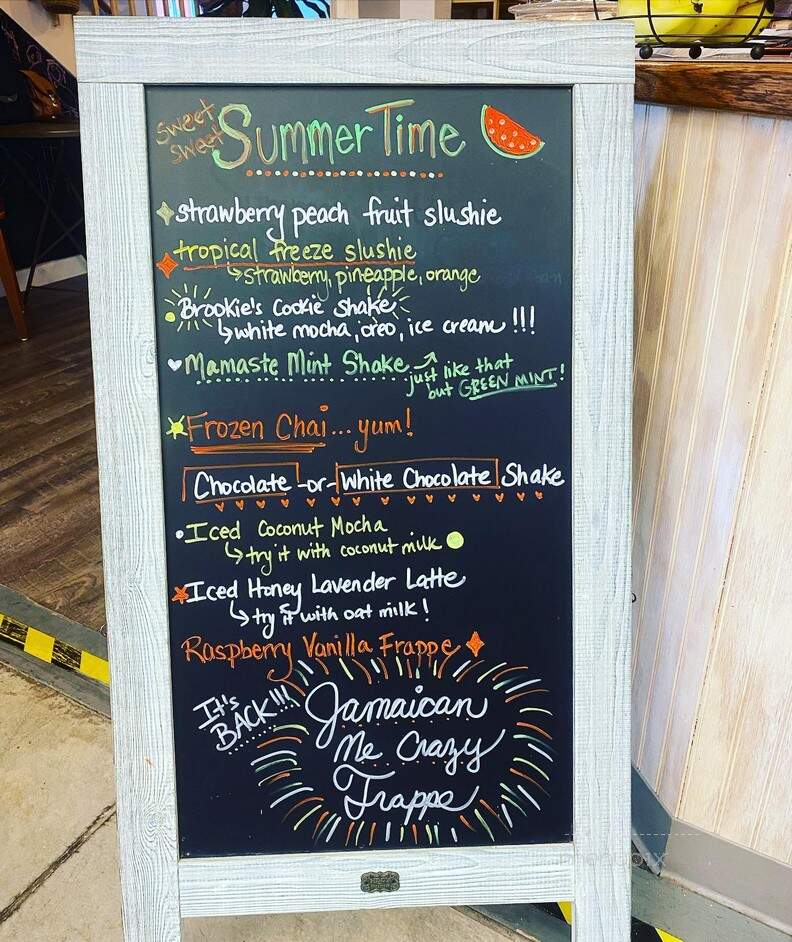 Sweet
Sweet
SummerTime
strawberry peach fruit slushie
tropical freeze slushie
strawberry, pineapple, orange
Brookie's Cookie Shake
white mocha, oreo, ice cream !!!
Mamaste Mint Shake
just like that
but GREEN MINT!
Frozen Chai... yum!
Chocolate -or- White Chocolate Shake
Iced Coconut Mocha
try it with coconut milk
Iced Honey Lavender Latte
try it with oat milk!
Raspberry Vanilla Frappe
It's
BACK!!!
Jamaican
Me Crazy
Frappe